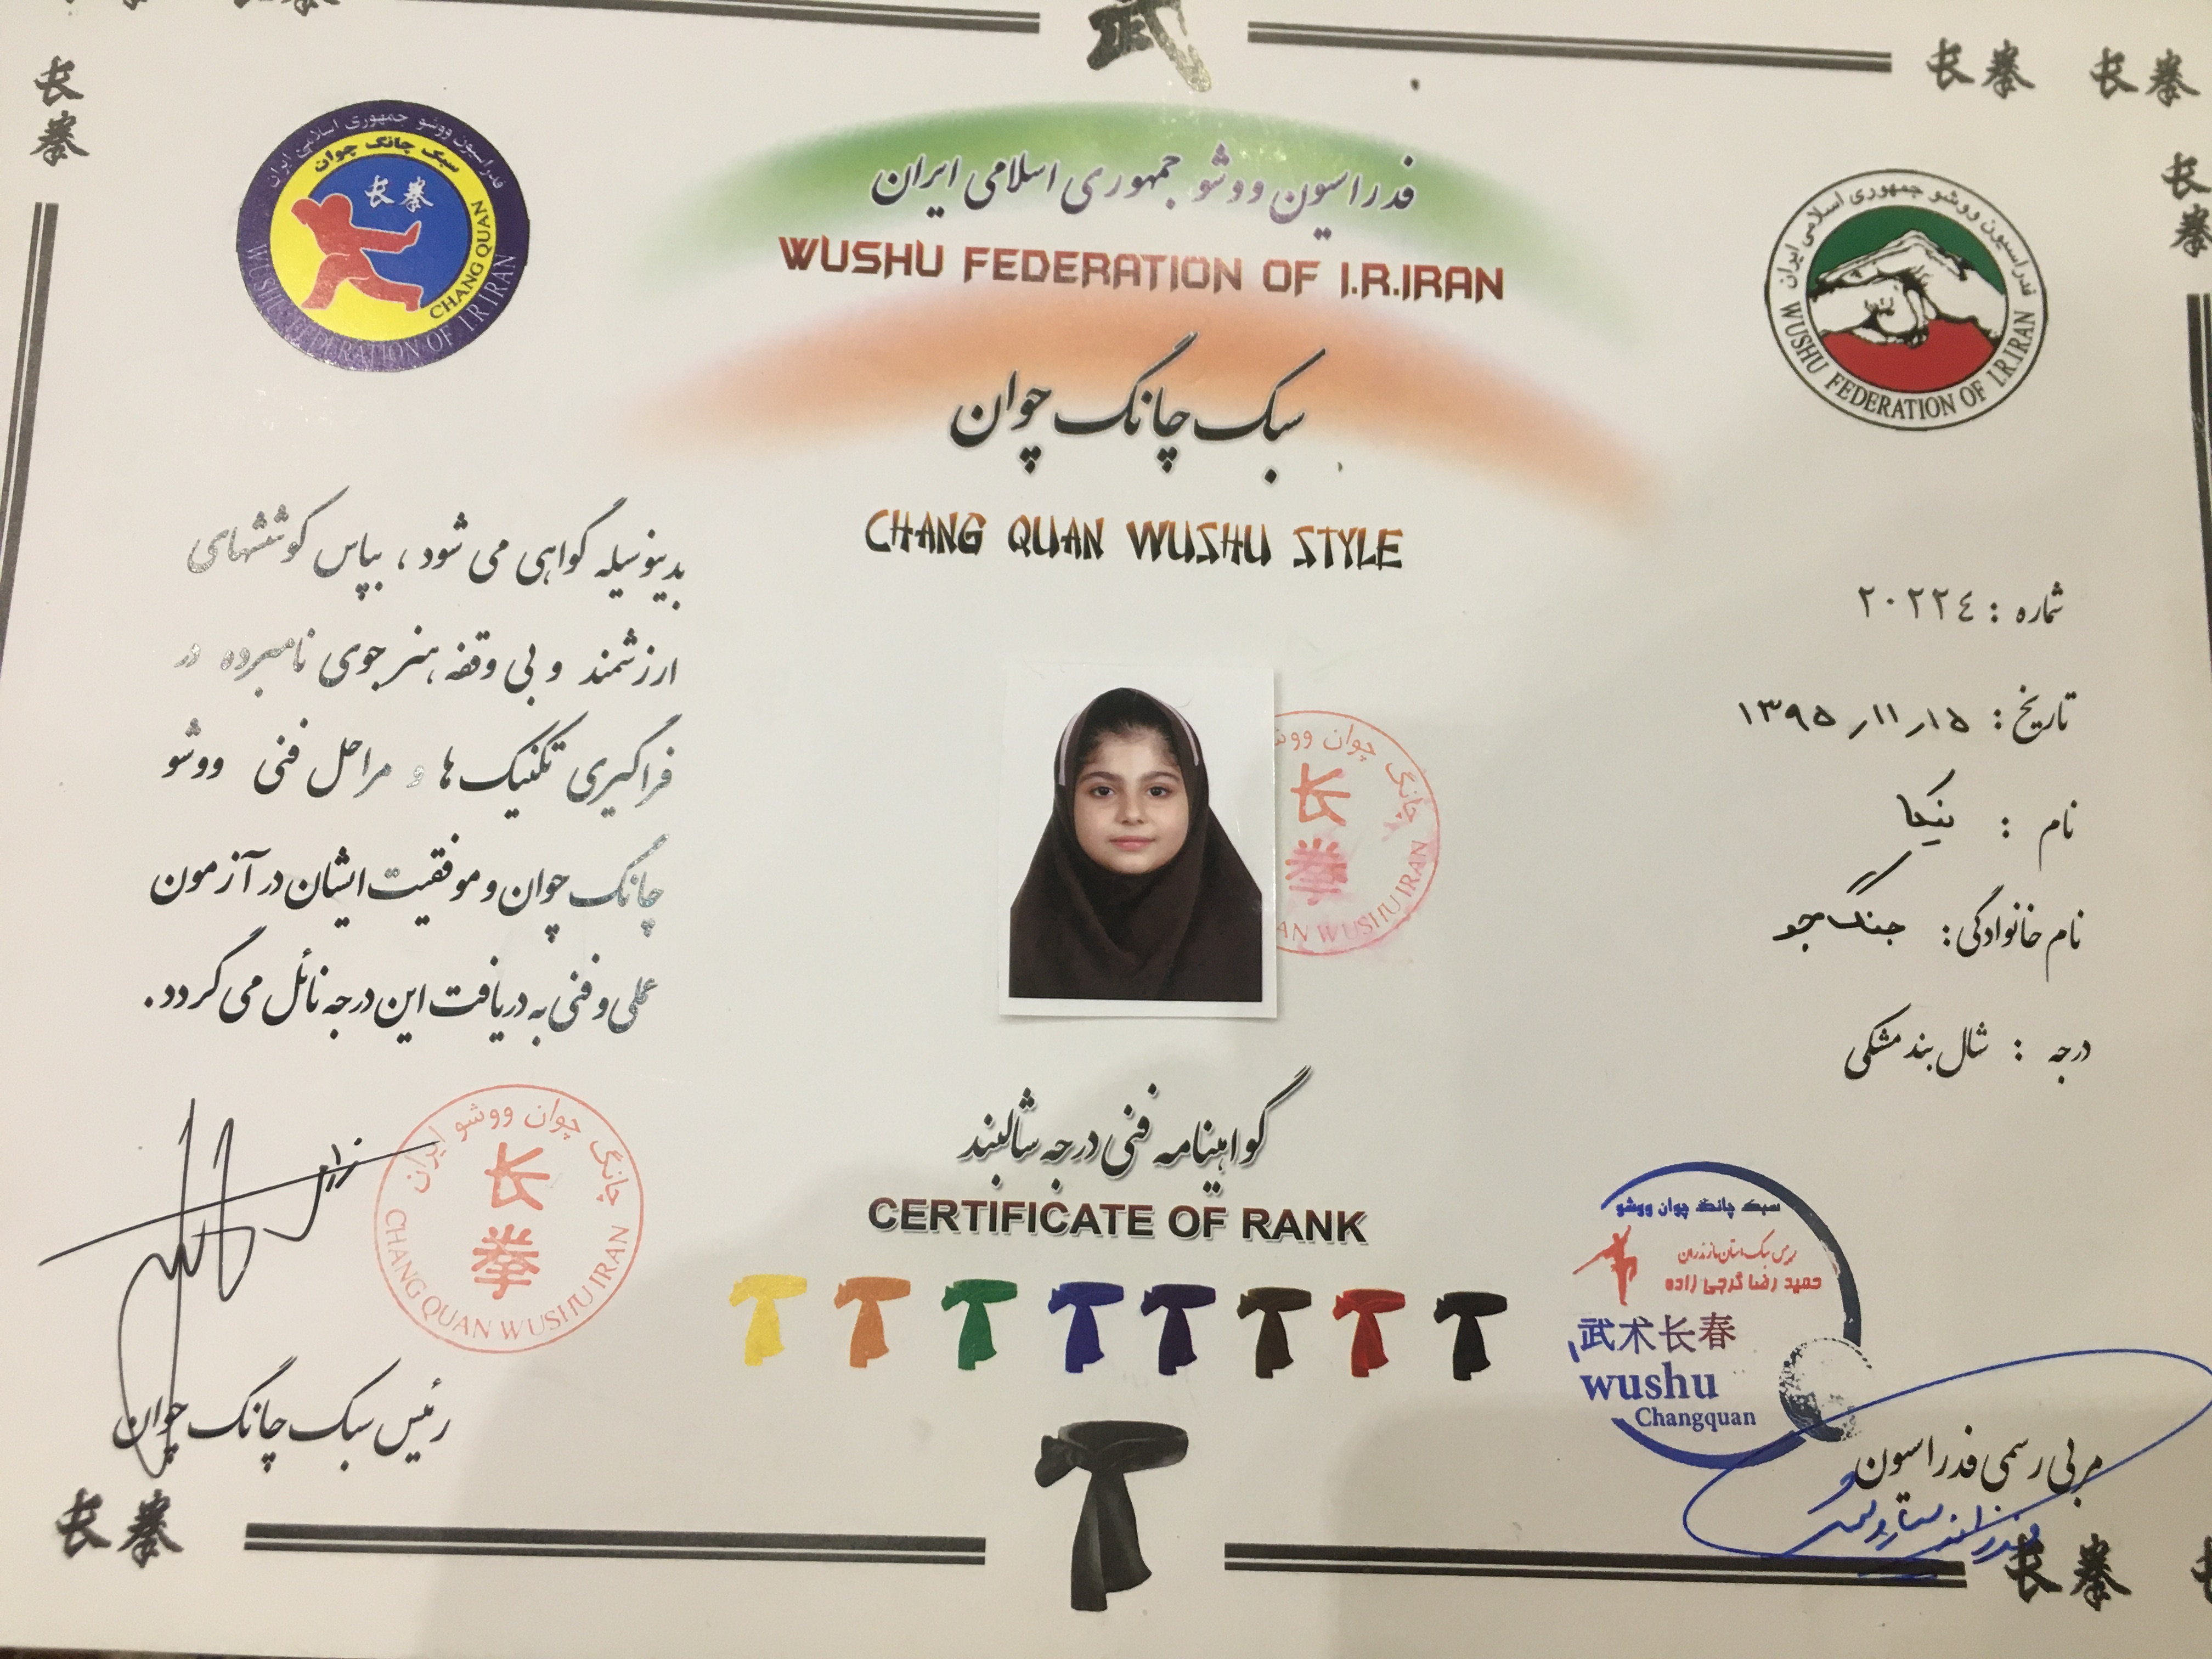 武
长拳
长拳
长拳
长拳
长拳
فدراسیون ووشو جمهوری اسلامی ایران
سبک چانگ چوان
长拳
CHANG QUAN
WUSHU FEDERATION OF I.R.IRAN
فدراسیون ووشو جمهوری اسلامی ایران
WUSHU FEDERATION OF I.R.IRAN
سبک چانگ چوان
CHANG QUAN WUSHU STYLE
فدراسیون ووشو جمهوری اسلامی ایران
WUSHU FEDERATION OF I.R.IRAN
شماره : ۲۰۲۲٤
تاریخ : ۱۳۹۵٫۱۱٫۱۵
نام : نیکا
نام خانوادگی : جنگجو
درجه : شال بند مشکی
بدینوسیله گواهی می شود ، بپاس کوششهای
ارزشمند و بی وقفه هنرجوی نامبرده در
فراگیری تکنیک ها و مراحل فنی ووشو
چانگ چوان و موفقیت ایشان در آزمون
عملی و فنی به دریافت این درجه نائل می گردد.
چانگ چوان ووشو
长拳
AN WUSHU IRAN
گواهینامه فنی درجه شالبند
CERTIFICATE OF RANK
چانگ چوان ووشو ایران
长拳
CHANG QUAN WUSHU IRAN
رئیس سبک چانگ چوان
سبک چانگ چوان ووشو
رئیس سبک استان مازندران
حمید رضا گرجی زاده
武术长春
wushu
Changquan
مربی رسمی فدراسیون
长拳
长拳